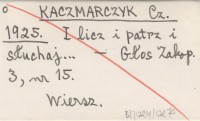 KACZMARCZYK Cz.
1925. I licz i patrz i
słuchaj... - Głos Zakop.
3, nr 15.
Wiersz.